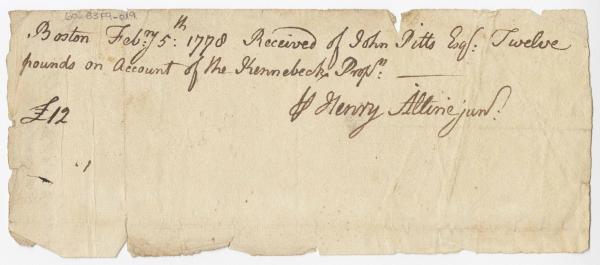 60-83F9-019
Boston Febry 5th: 1778 Received of John Pitts Esqr: Twelve
pounds on Account of the Kennebeck Propn
£12
Henry Alline junr.